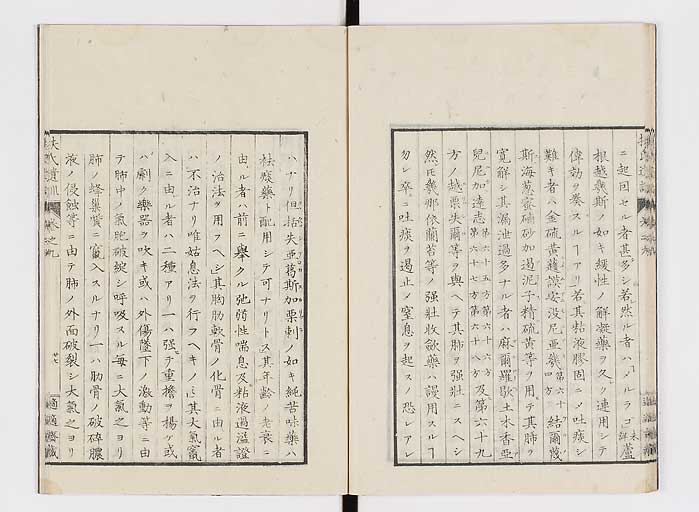 ニ起因セル者甚多シ若然ル者ハメルラゴ未詳蘆
根越幾斯ノ如キ緩性ノ解凝藥ヲ久ク連用シテ
偉効ヲ奏スルヿアリ若其粘液膠固ニメ吐痰シ
難キ者ハ金硫黄護謨安没尼亜幾四方第六十結爾茂
斯海葱蜜礦砂加過泥子精硫黄等ヲ用テ其肺ヲ
寛解シ其漏泄過多ナル者ハ麻爾羅歇土木香亜
兒尼加遠志第六十五方第六十六方第六十七方第六十八方及第六十九
方ノ越栗失爾等ヲ與ヘテ其肺ヲ強壮ニスヘシ
然氏幾那依蘭苔等ノ強壮收歛藥ハ謾用スルヿ
勿レ卒ニ吐痰ヲ遏止メ窒息ヲ起スノ恐レアレ
ハナリ但括失亜葛斯加栗剌ノ如キ純苦味藥ハ
祛痰藥ト配用シテ可ナリトス其年齢ノ老衰ニ
由ル者ハ前ニ擧クル弛弱性喘息及粘液過溢證
ノ治法ヲ用フヘシ其胸肋軟骨ノ化骨ニ由ル者
ハ不治ナリ唯姑息法ヲ行フヘキノミ其大氣竄
入ニ由ル者ハ二種アリ一ハ強テ重擔ヲ揚ケ或
ハ劇ク樂器ヲ吹キ或ハ外傷墜下ノ激動等ニ由
テ肺中ノ氣胞破綻シ呼吸スル毎ニ大氣之ヨリ
肺ノ蜂巣質ニ竄入スルナリ一ハ肋骨ノ破碎膿
液ノ侵蝕等ニ由テ肺ノ外面破裂シ大氣之ヨリ
扶氏遺訓
卷之九
適適齋藏